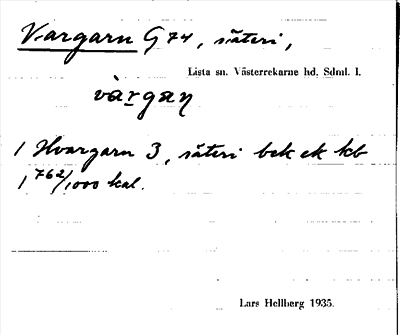 Vargarn G 74, säteri,
Lista sn. Västerrekarne hd. Sdml. l.
vàrgan
1 Hvargarn 3, säteri bek ek kb
1 762/1000 kal.
Lars Hellberg 1935.